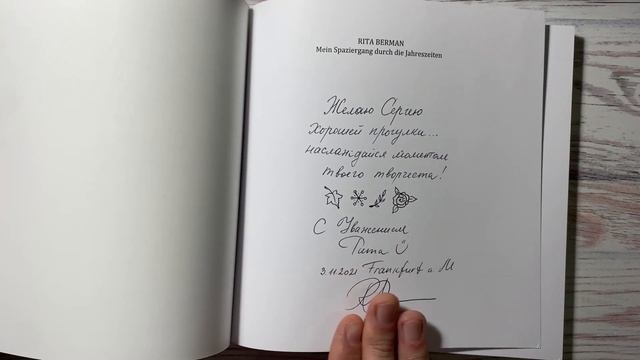 RITA BERMAN
Mein Spaziergang durch die Jahreszeiten
Желаю Сергию
Хорошей прогулки...
наслаждайся моментом
твоего творчества!
С Уважением
Рита
3.11.2021 Frankfurt a M